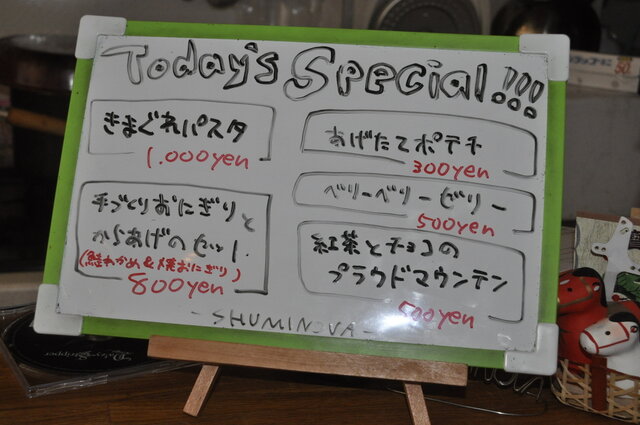 Today's Special!!!
きまぐれパスタ
1.000yen
手づくりおにぎりと
からあげのセット.
(鮭わかめ&焼おにぎり)
800yen
あげたてポテチ
300yen
ベリーベリーゼリー
500yen
紅茶とチョコの
プラウドマウンテン
500yen
-SHUMINOVA-